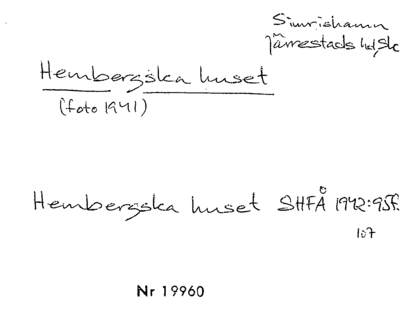 Simrishamn
Järrestads hd, Sk
Hembergska huset
(foto 1941)
Hembergska huset SHFÅ 1942:95f.
107
Nr 19960